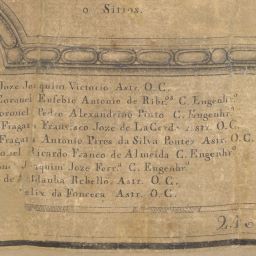 o Sitios.
Joze Joaquim Victorio Astr. O.C.
Coronel Euſebio Antonio de Ribr.ᵒˢ C. Engenhr.ᵒ
oronel Pedro Alexandrino Pinto C. Engenhr.ᵒ
Fragata Franciſco Joze de LaCerda Astr. O.C.
Fragata Antonio Pires da Silva Pontes Astr. O.C.
onel Ricardo Franco de Almeida C. Engenhr.ᵒ
Joaquim Joze Ferr.ᵃ C. Engenhr.ᵒ
de Saldanha Rebello. Astr. O.C.
elix da Fonceca Astr. O.C.